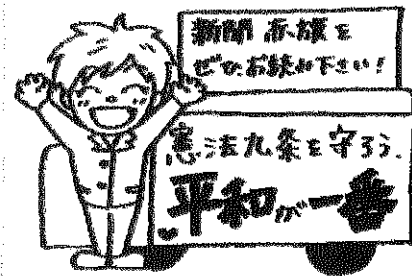 新聞 赤旗を
ぜひお読み下さい！
憲法九条を守ろう.
平和が一番